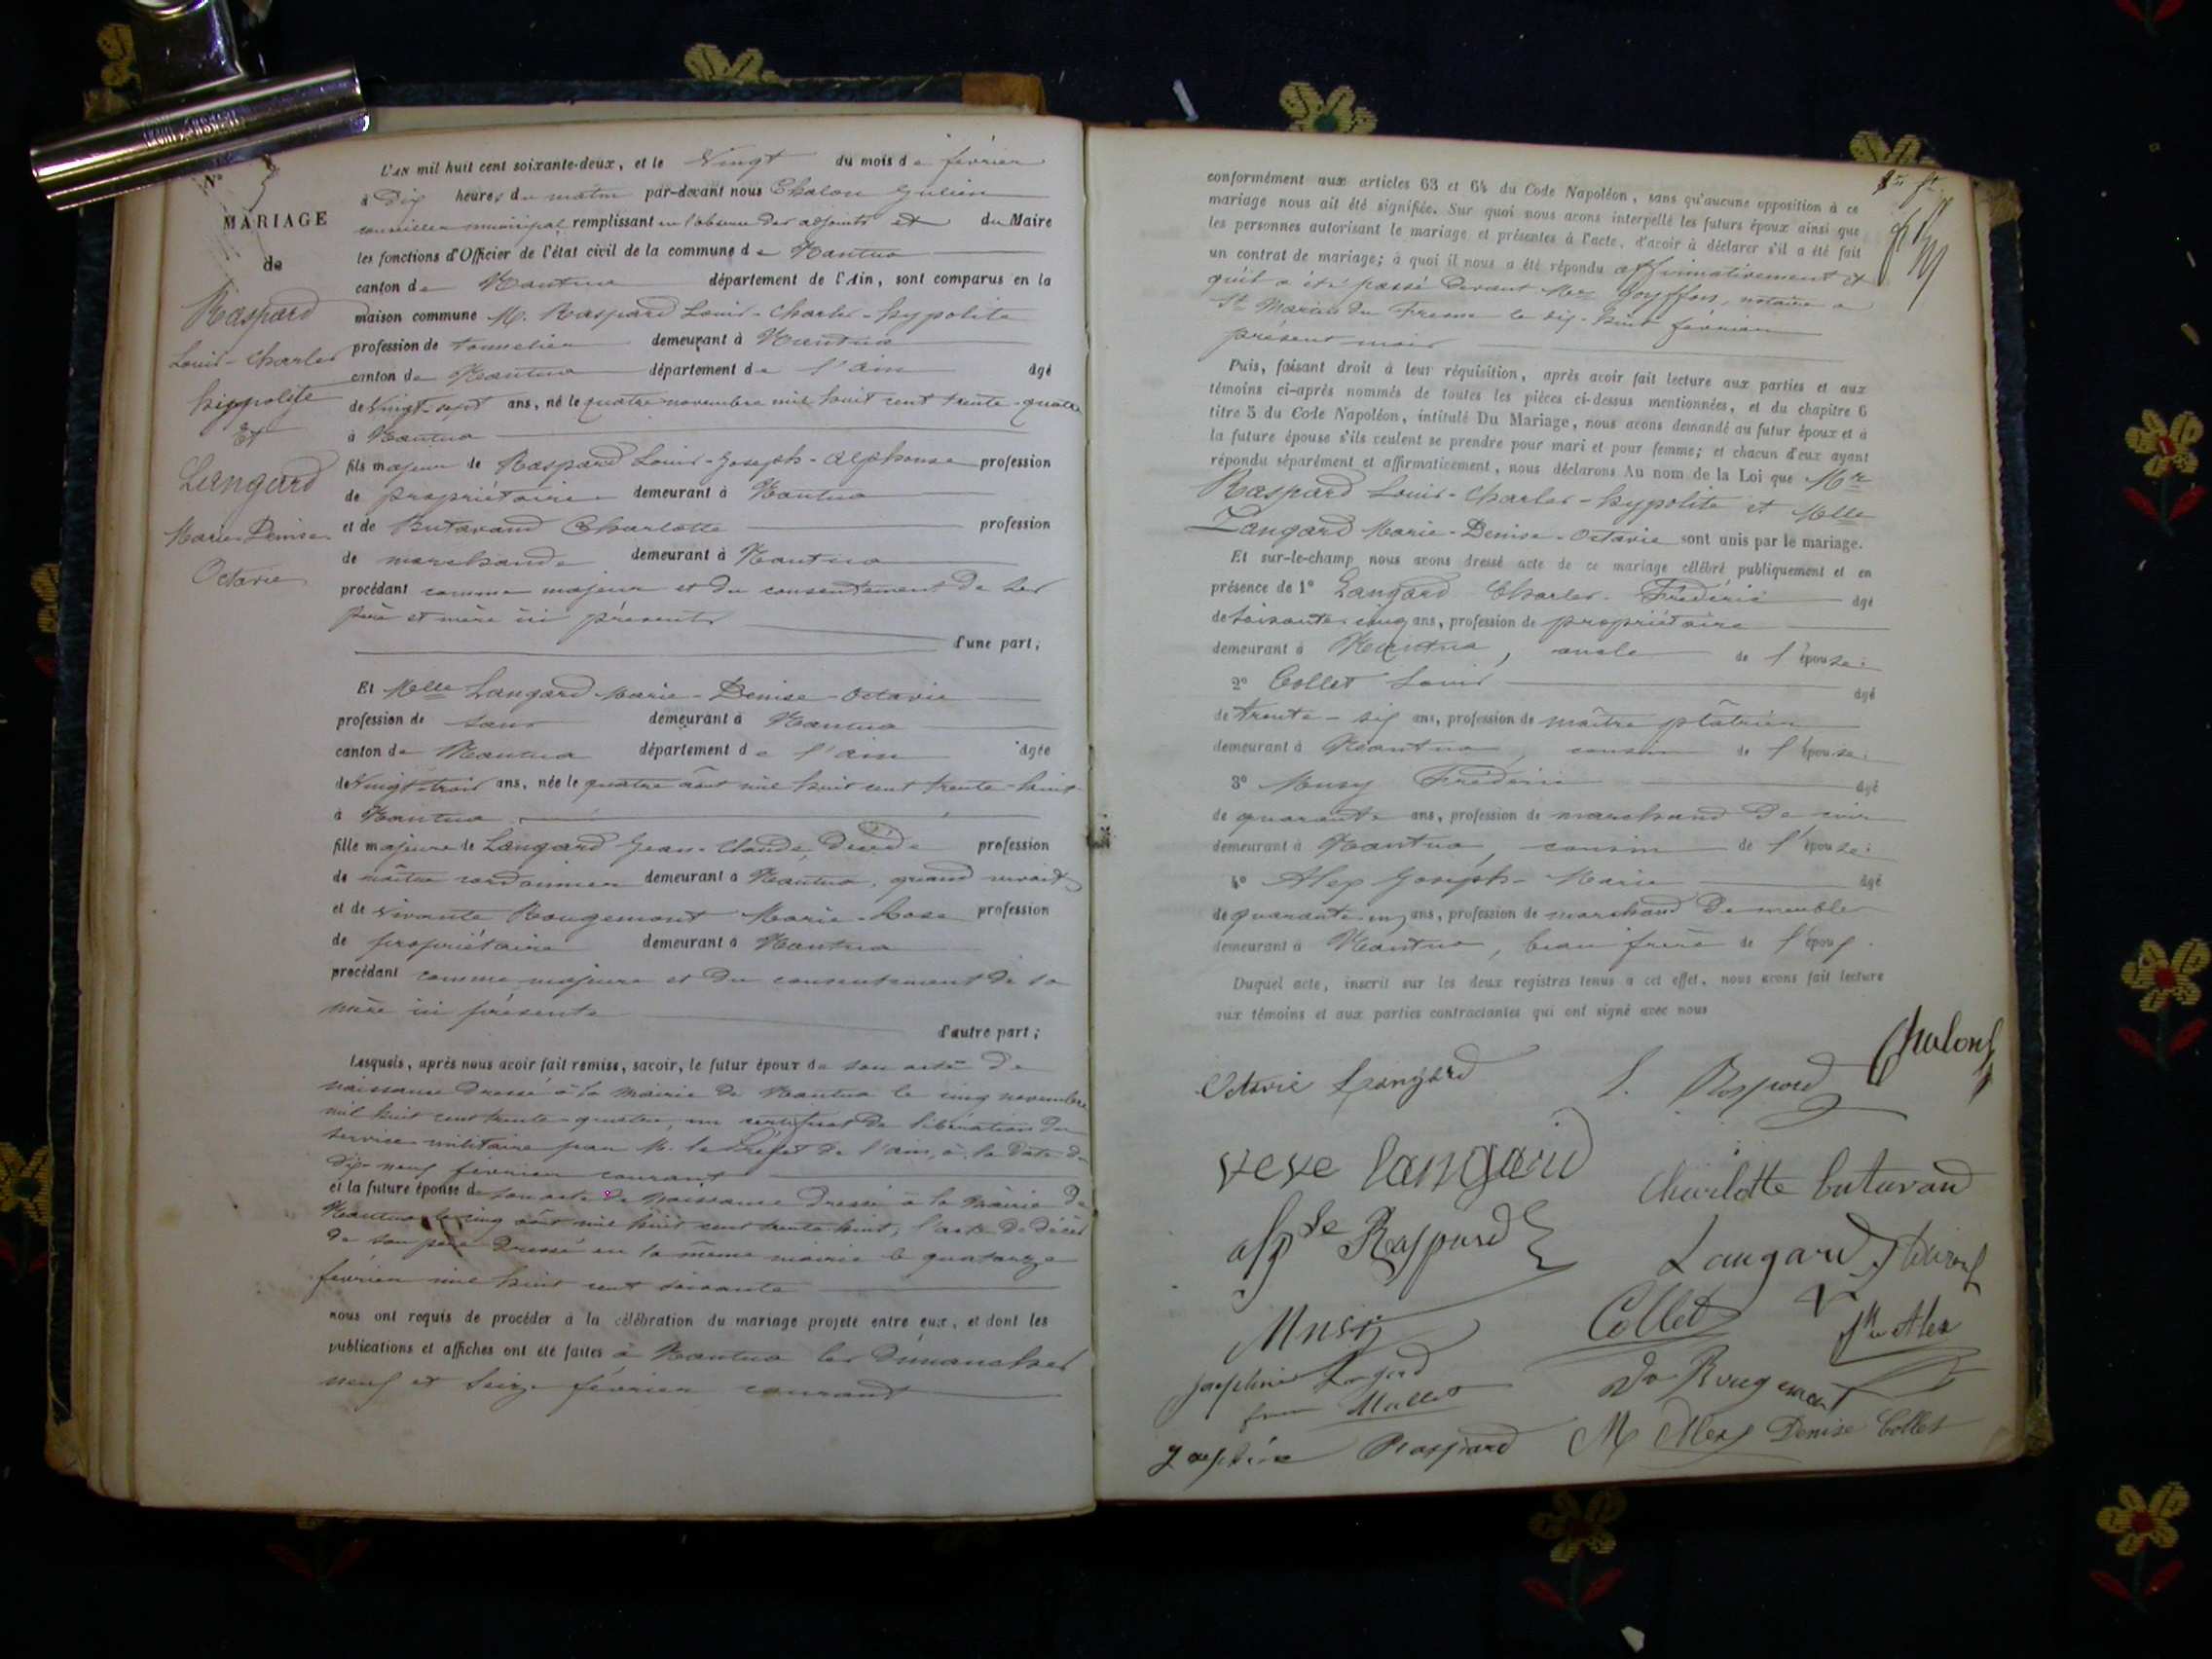 N°
MARIAGE
de
Raspard
Louis-Charles
hippolite
Et
Langard
Marie-Denise
Octavie
L'AN mil huit cent soixante-deux, et le Vingt du mois de février
à Dix heures du matin par-devant nous Chalon Julien
conseiller municipal remplissant en l'absence des adjoints et du Maire
les fonctions d'Officier de l'état civil de la commune de Nantua
canton de Nantua département de l'Ain, sont comparus en la
maison commune M. Raspard Louis-Charles-hypolite
profession de tonnelier demeurant à Nantua
canton de Nantua département de l'ain âgé
de Vingt-sept ans, né le quatre novembre mil huit cent trente-quatre
à Nantua
fils majeur de Raspard Louis-Joseph-Alphonse profession
de propriétaire demeurant à Nantua
et de Butavand Charlotte profession
de marchande demeurant à Nantua
procédant comme majeur et du consentement de ses
père et mère ici présents
d'une part;
Et Melle Langard Marie-Denise-Octavie
profession de sans demeurant à Nantua
canton de Nantua département de l'ain âgée
de Vingt-trois ans, née le quatre août mil huit cent trente-huit
à Nantua
fille majeure de Langard Jean-Claude, Décédé profession
de maître cordonnier demeurant à Nantua, quand vivait
et de vivante Rougemont Marie-Rose profession
de propriétaire demeurant à Nantua
procédant comme majeure et du consentement de sa
mère ici présente
d'autre part;
Lesquels, après nous avoir fait remise, savoir, le futur époux de son acte de
naissance dressé à la Mairie de Nantua le cinq novembre
mil huit cent trente-quatre, un certificat de libération du
service militaire par M. le Préfet de l'ain, à la date du
dix-neuf février courant
et la future épouse de son acte de naissance dressé à la Mairie de
Nantua le cinq août mil huit cent trente huit, l'acte de décès
de son père dressé en la même mairie le quatorze
février mil huit cent soixante
nous ont requis de procéder à la célébration du mariage projeté entre eux, et dont les
publications et affiches ont été faites à Nantua les dimanches
neuf et seize février courant
conformément aux articles 63 et 64 du Code Napoléon, sans qu'aucune opposition à ce
mariage nous ait été signifiée. Sur quoi nous avons interpellé les futurs époux ainsi que
les personnes autorisant le mariage et présentes à l'acte, d'avoir à déclarer s'il a été fait
un contrat de mariage; à quoi il nous a été répondu affirmativement et
qu'il a été passé devant Me Goyffon, notaire a
St Martin du Fresne le dix-huit février
présent mois
Puis, faisant droit à leur réquisition, après avoir fait lecture aux parties et aux
témoins ci-après nommés de toutes les pièces ci-dessus mentionnées, et du chapitre 6
titre 5 du Code Napoléon, intitulé Du Mariage, nous avons demandé au futur époux et à
la future épouse s'ils veulent se prendre pour mari et pour femme; et chacun d'eux ayant
répondu séparément et affirmativement, nous déclarons Au nom de la Loi que Mr
Raspard Louis-Charles-hypolite et Melle
Langard Marie-Denise-Octavie sont unis par le mariage.
Et sur-le-champ nous avons dressé acte de ce mariage célébré publiquement et en
présence de 1° Langard Charles-Frédéric âgé
de soixante cinq ans, profession de propriétaire
demeurant à Nantua, oncle de l'épouse:
2° Collet Louis âgé
de trente-six ans, profession de maître plâtrier
demeurant à Nantua, cousin de l'épouse:
3° Musy Frédéric âgé
de quarante ans, profession de marchand de cuir
demeurant à Nantua, cousin de l'épouse:
4° Alex Joseph-Marie âgé
de quarante-un ans, profession de marchand de meubles
demeurant à Nantua, beau frère de l'époux.
Duquel acte, inscrit sur les deux registres tenus à cet effet, nous avons fait lecture
aux témoins et aux parties contractantes qui ont signé avec nous
Chalon
Octavie Langard L. Raspard
veve langard Charlotte butavand
Alpse Raspard Langard
Musy Collet Jh Alex
Josephine Langard de Rougemont
femme Mallet
Joséphine Raspard M Alex Denise Collet